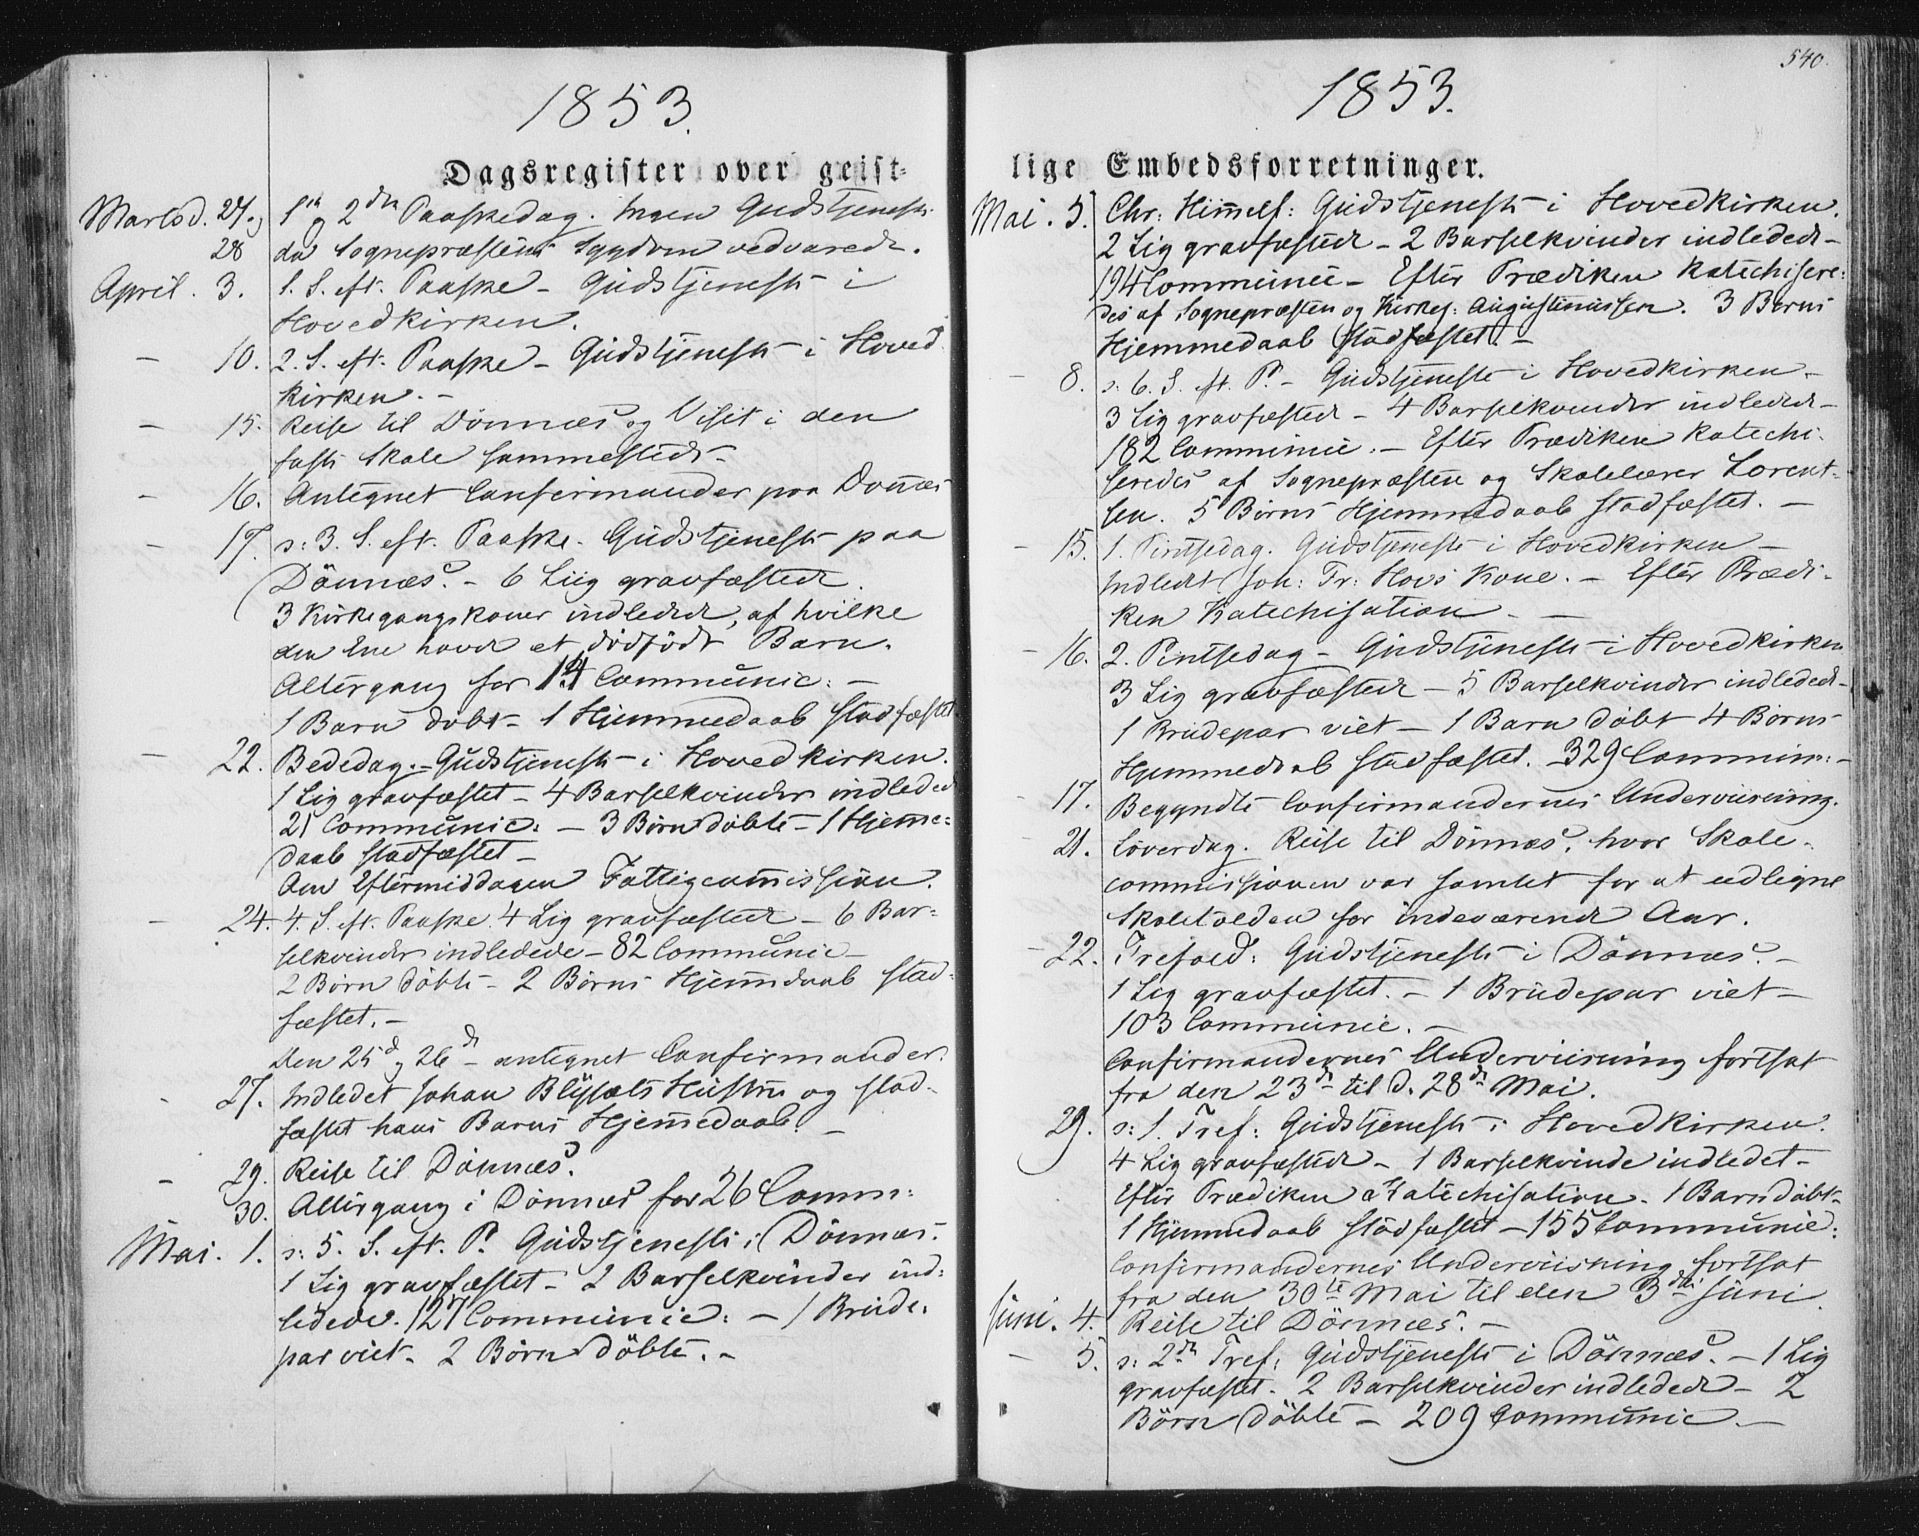 1853.
Dagsregister over geist-
Martsd. 27 og 1ste og 2den Paaskedag. Ingen Gudstjeneste
28 da Sognepræstens Sygdom vedvarede.
April. 3. 1. S. eft. Paaske - Gudstjeneste i
Hovedkirken.
- 10. 2. S. eft. Paaske - Gudstjeneste i Hoved
kirken. -
- 15. Reise til Dönnæs og Visit i den
faste Skole sammesteds -
- 16. Antegnet Confirmander paa Dönnæs
- 17. s: 3. S. eft. Paaske. Gudstjeneste paa
Dönnæs. - 6 Liig gravfæstede.
3 Kirkegangskoner indledede, af hvilke
den Ene havde et dødfödt Barn.
Altergang for Communic: -
1 Barn döbt - 1 Hjemmedaab stadfæstet
- 22. Bededag. - Gudstjeneste i Hovedkirken.
1 Lig gravfæstet - 4 Barselkvinder indledede
21 Communic: - 3 Börn döbte - 1 Hjemme=
daab stadfæstet -
Om Eftermiddagen Fattigcommission.
- 24. 4. S. eft. Paaske. 4 Lig gravfæstede - 6 Bar=
selkvinder indledede - 82 Communic -
2 Börn döbte - 2 Börns Hjemmdaab stad=
fæstet. -
Den 25de og 26de - antegnet Confirmander.
- 27. Indledet Johan Hustru og stad-
fæstet hans Barns Hjemmedaab. -
- 29. Reise til Dönnæs.
30. Altergang i Dönnæs for 26 Comm:
Mai. 1. s: 5. S. eft. P. Gudstjeneste i Dönnæs.
1 Lig gravfæstet - 2 Barselkvinder ind=
ledede. 127 Communic: - 1 Brude=
par viet - 2 Börn döbte. -
540.
1853.
lige Embedsforretninger.
Mai. 5. Chr: Himmelf: Gudstjeneste i Hovedkirken.
2 Lig gravfæstede - 2 Barselkvinder indledede -
194 Communic - Efter Prædiken Katechisere=
des af Sognepræsten og Kirkes: Augustinussen. 3 Børns
Hjemmedaab stadfæstet. -
- 8. s: 6. S. ft. P. - Gudstjeneste i Hovedkirken -
3 Lig gravfæstede - 4 Barselkvinder indledede -
182 Communic. - Efter Prædiken Katechi-
seredes af Sognepræsten og Skolelærer Lorent-
sen. 5 Börns Hjemmedaab stadfæstet. -
- 15. 1. Pintsedag. Gudstjeneste i Hovedkirken -
Indledt Joh: Fr: Hovs Kone. - Efter Prædi-
ken Katechisation. -
- 16. 2. Pintsedag - Gudstjeneste i Hovedkirken
3 Lig gravfæstede - 5 Barselkvinder indledede -
1 Brudepar viet - 1 Barn döbt 4 Börns
Hjemmedaab stadfæstet. - 329 Commun: -
- 17. Begyndte Confirmandernes Underviisning.
- 21. Löverdag. Reise til Dönnæs, hvor Skole-
commissionen var samlet for at udligne
Skoletolden for indeværende Aar.
- 22. Trefold: Gudstjeneste i Dönnæs. -
1 Lig gravfæstet. - 1 Brudepar viet -
103 Communic. -
Confirmandernes Underviisning fortsat
fra den 23de til d. 28de Mai.
29. s: 1. Tref: Gudstjeneste i Hovedkirken.
4 Lig gravfæstede - 1 Barselkvinde indledet -
Efter Prædiken Katechisation - 1 Barn döbt -
1 Hjemmedaab stadfæstet - 155 Communic:
Confirmandernes Underviisning fortsat
fra den 30te Mai til den 3die Juni.
Juni. 4. Reise til Dönnæs. -
- 5. s: 2den Tref: Gudstjeneste i Dönnæs. - 1 Lig
gravfæstet. 2 Barselkvinder indledede - 2
Börn döbte - 209 Communic. -